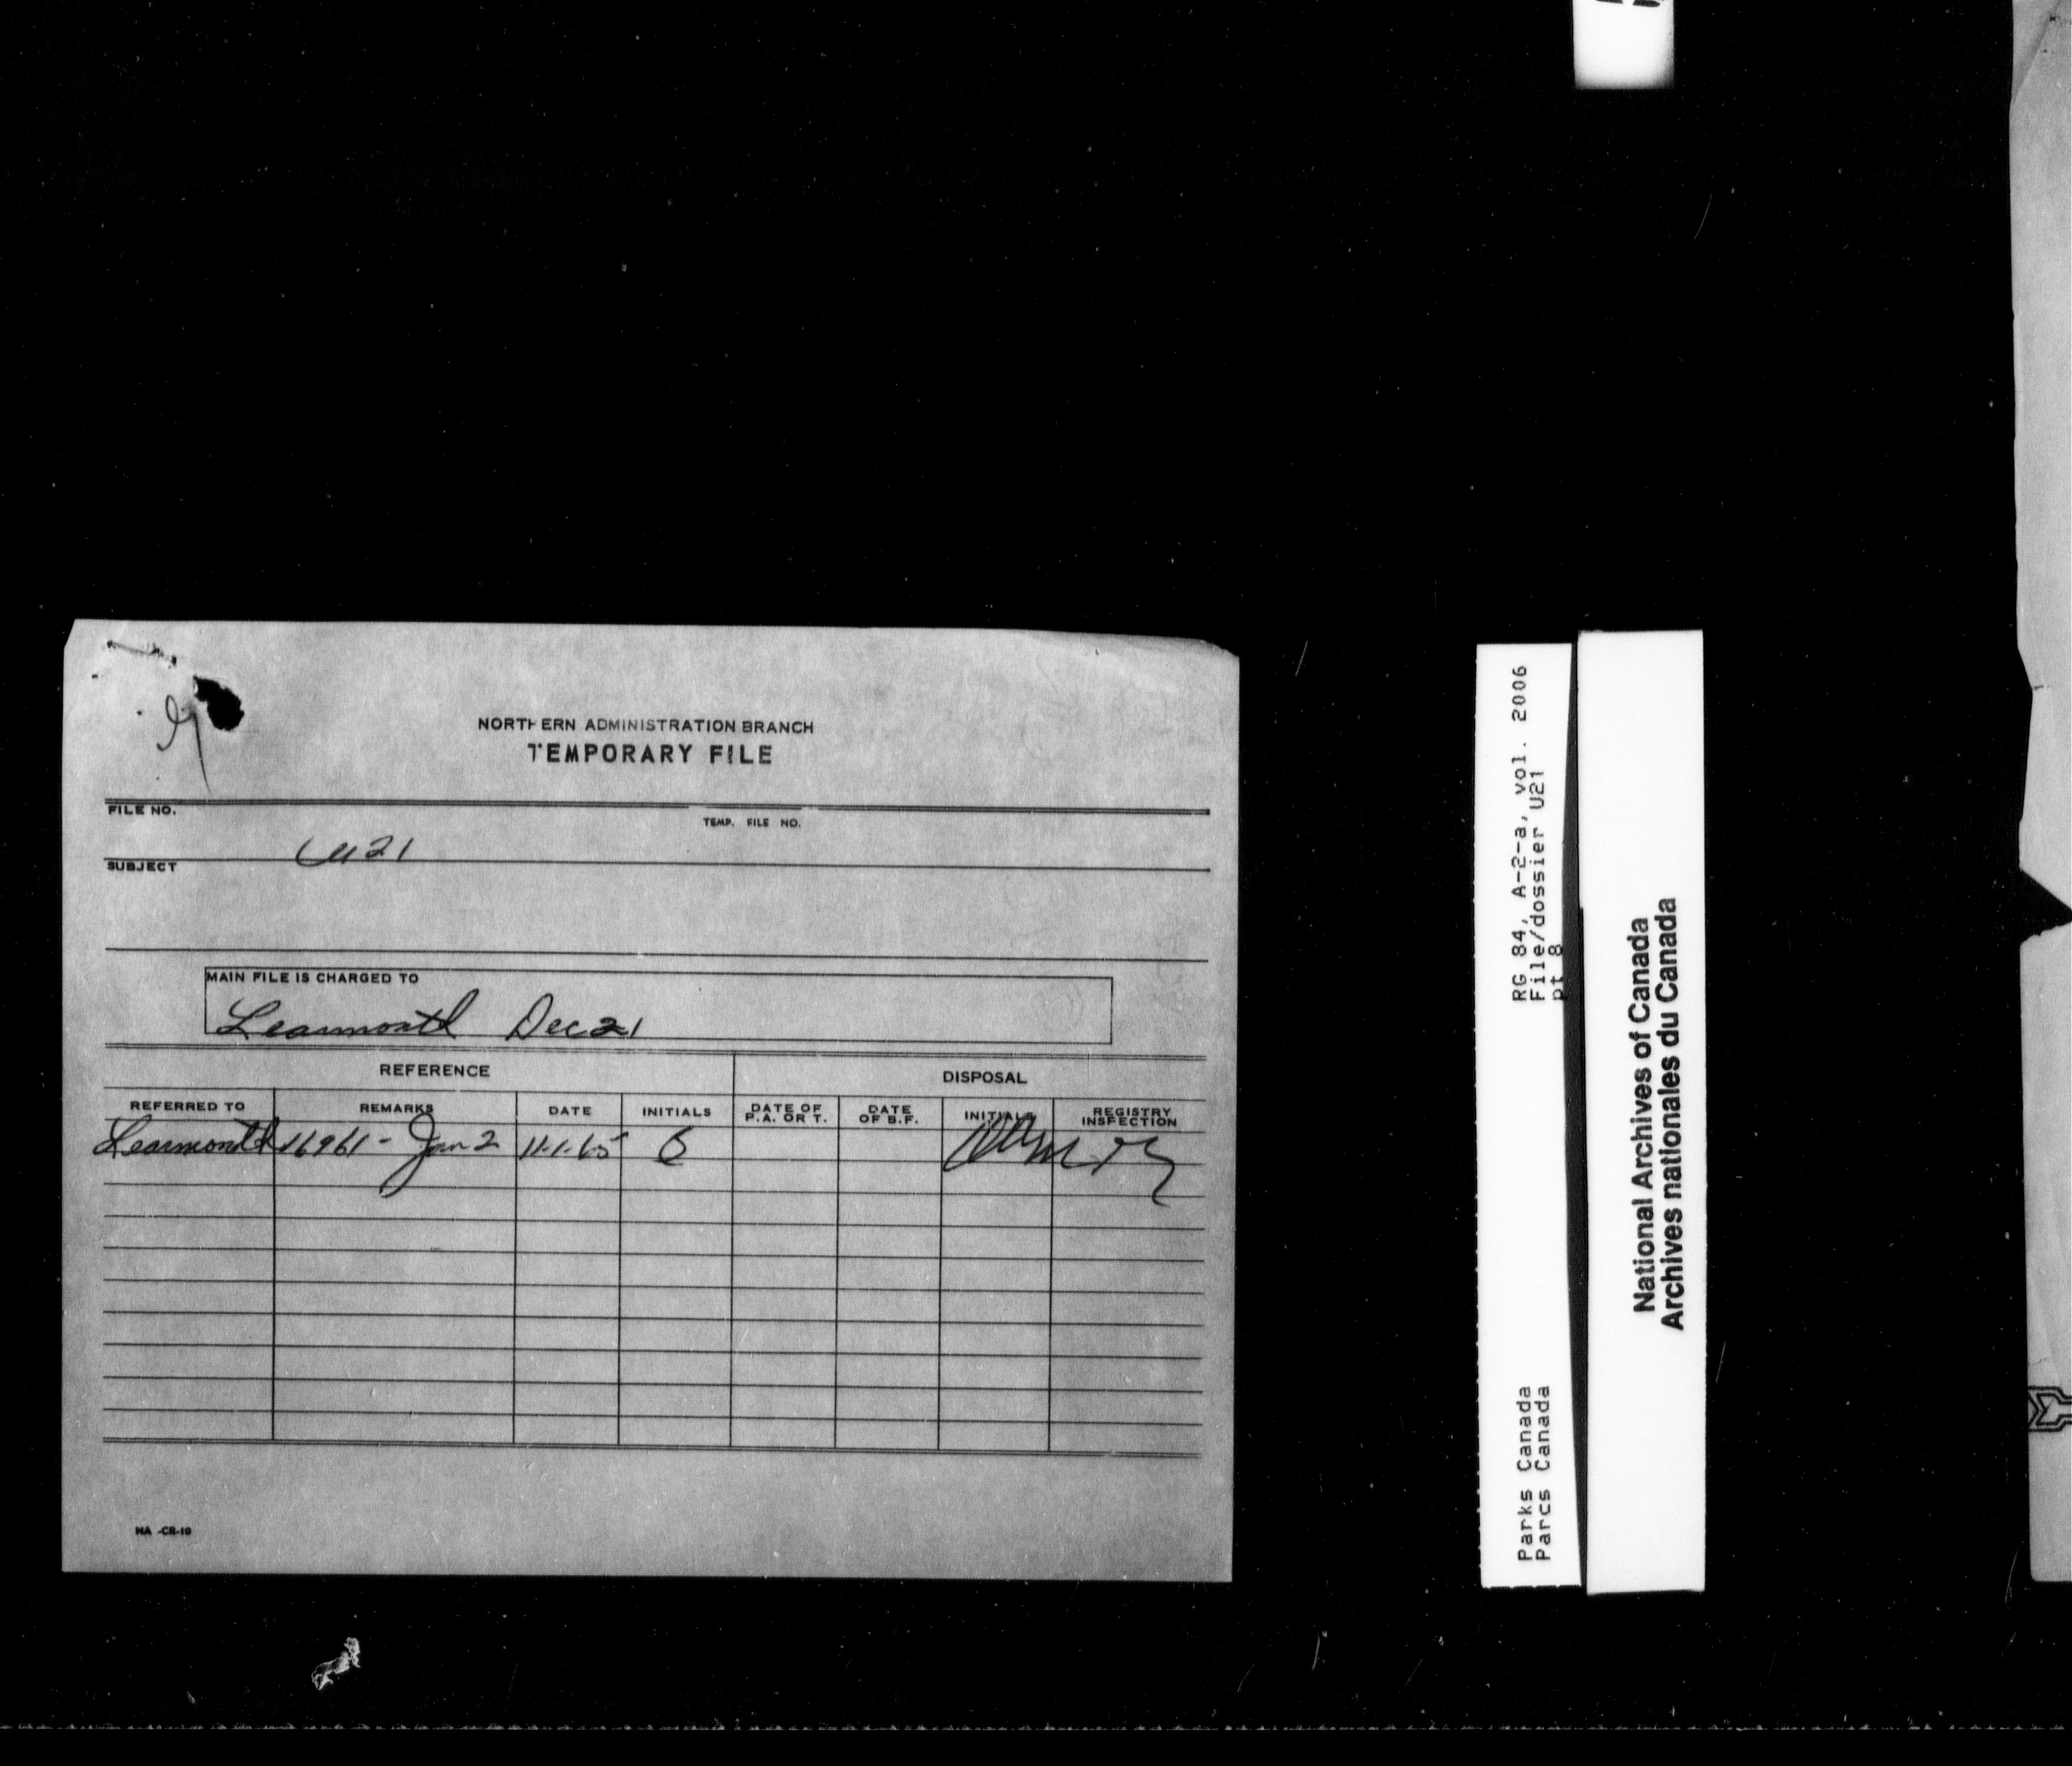 NORTHERN ADMINISTRATION BRANCH
TEMPORARY FILE
FILE NO.
TEMP. FILE NO.
U21
SUBJECT
MAIN FILE IS CHARGED TO
Learmonth Dec 21
REFERENCE
DISPOSAL
REFERRED TO REMARKS DATE INITIALS DATE OF P.A. OR T. DATE OF B.F. INITIALS REGISTRY INSPECTION
Learmonth 16961 - Jan 2 11.1.65
NA -CR-10
RG 84, A-2-a, vol. 2006
File/dossier U21
pt 8
Parks Canada
Parcs Canada
National Archives of Canada
Archives nationales du Canada